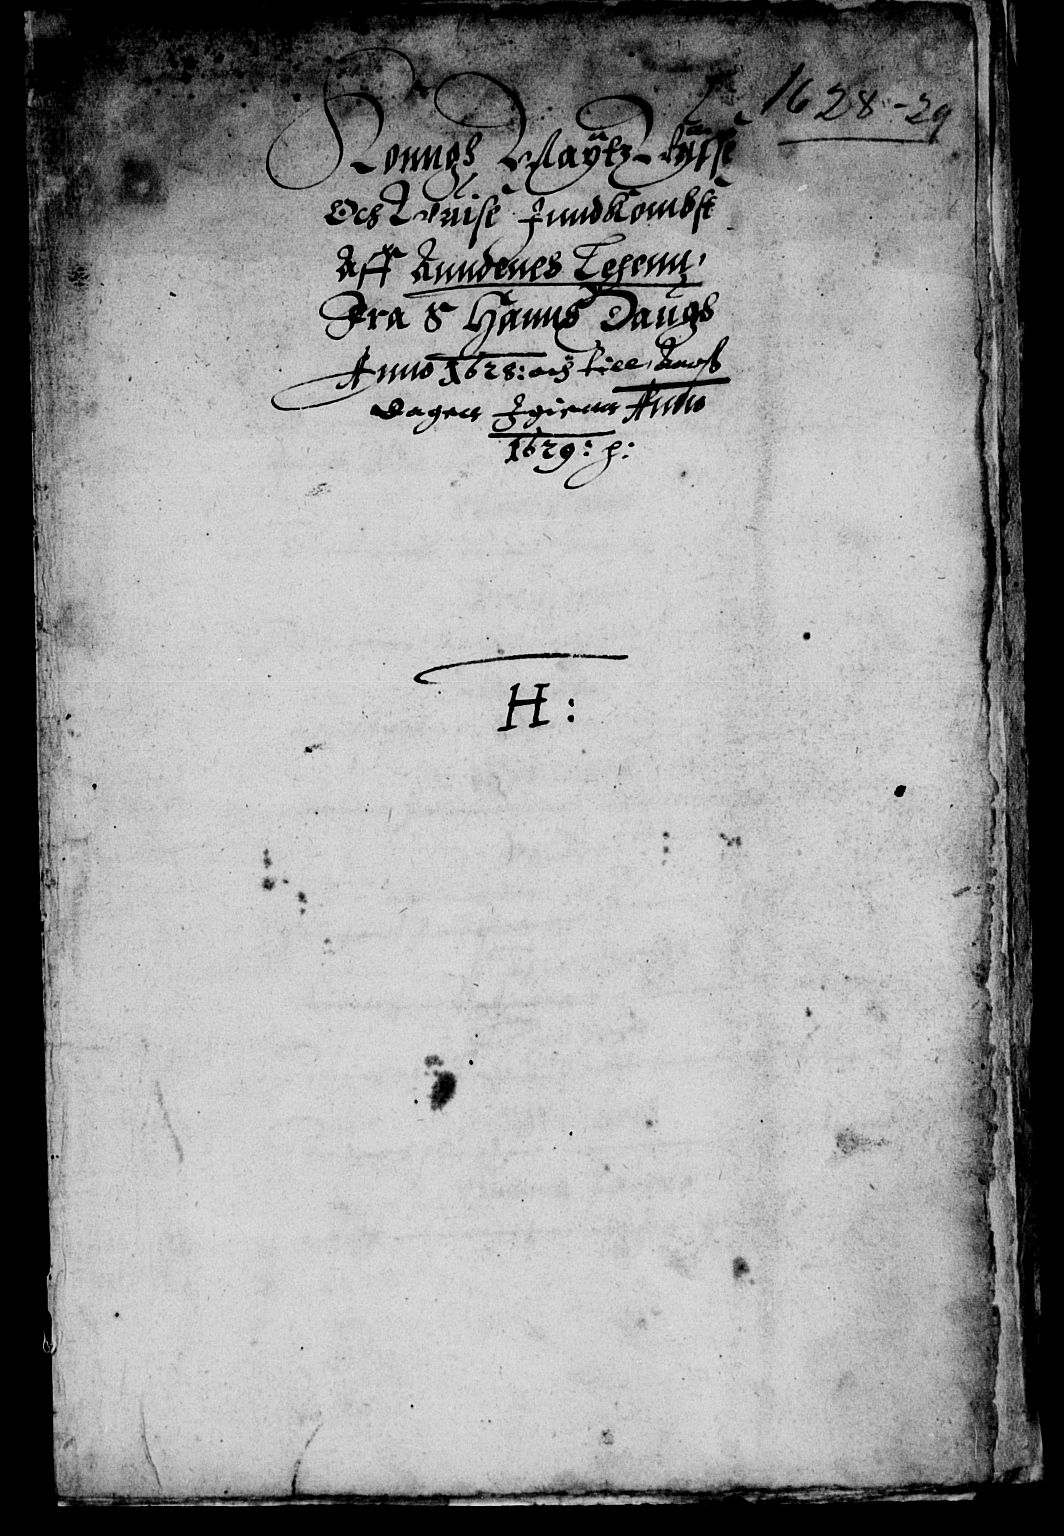 1628-29
Konngs Maÿtz Wisse
Och Wuisse Inndkombst
Aff Anndenes Lehenn,
Fra S Hanns Daugs
Anno 1628: och till Aars
dagen Igienn Anno
1629: p:
H: